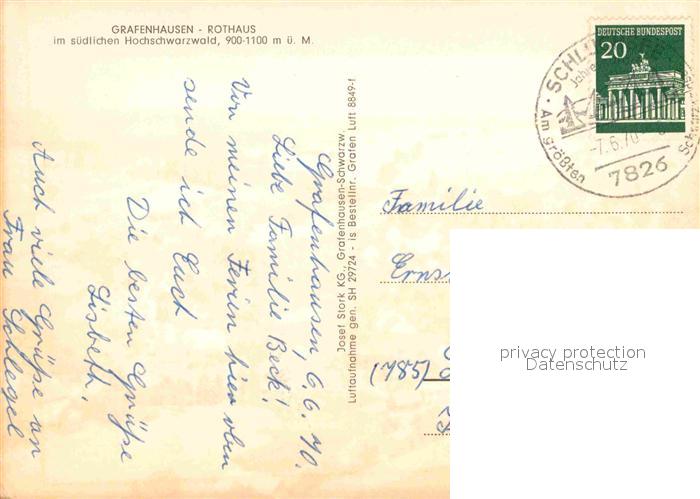 GRAFENHAUSEN - ROTHAUS
im südlichen Hochschwarzwald, 900-1100 m ü. M.
Grafenhausen, 6.6.70.
Liebe Familie Beck!
Von meinen Ferien hier oben
sende ich Euch
Die besten Grüße
Lisbeth.
Auch viele Grüße an
Frau Schlegel
Josef Stork KG., Grafenhausen-Schwarzw.
Luftaufnahme gen. SH 29724 - is Bestellnr. Grafen Luft 8849-f
DEUTSCHE BUNDESPOST
20
SCHLU
Jahre
Am größten
-7.6.70
7826
Familie
Erns
(785)
privacy protection
Datenschutz